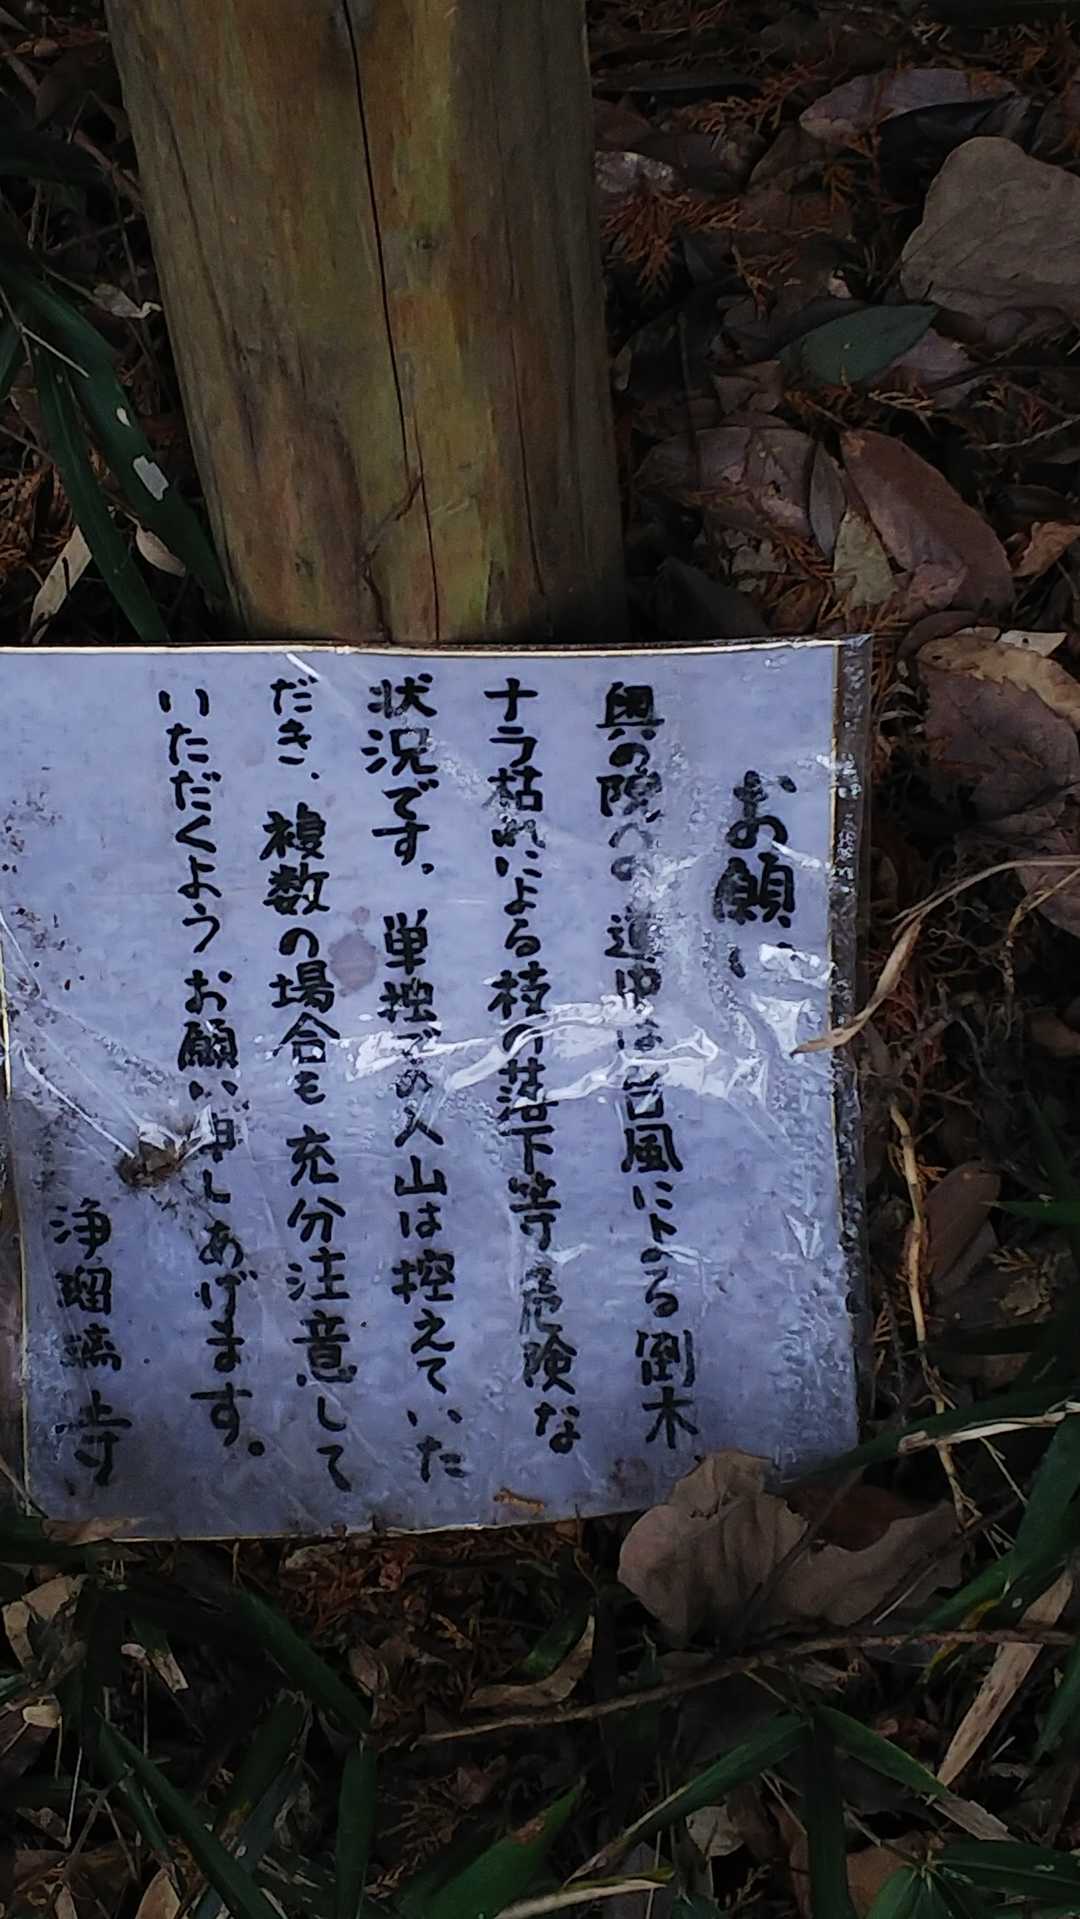 お願い
奥の院への道中は台風による倒木
ナラ枯れによる枝の落下等危険な
状況です。単独での入山は控えていた
だき、複数の場合も充分注意して
いただくようお願い申しあげます。
浄瑠璃寺